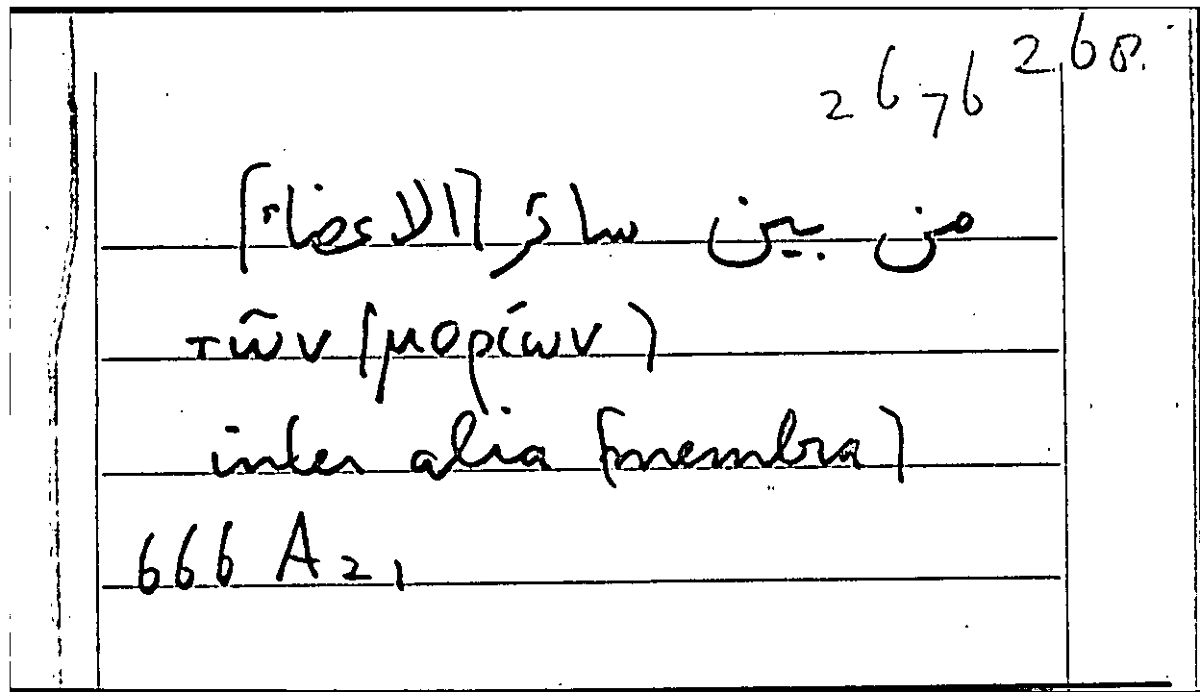 268.
2676
من بين سائر [الاعضاء]
τῶν [μορίων]
inter alia [membra]
666 A 21